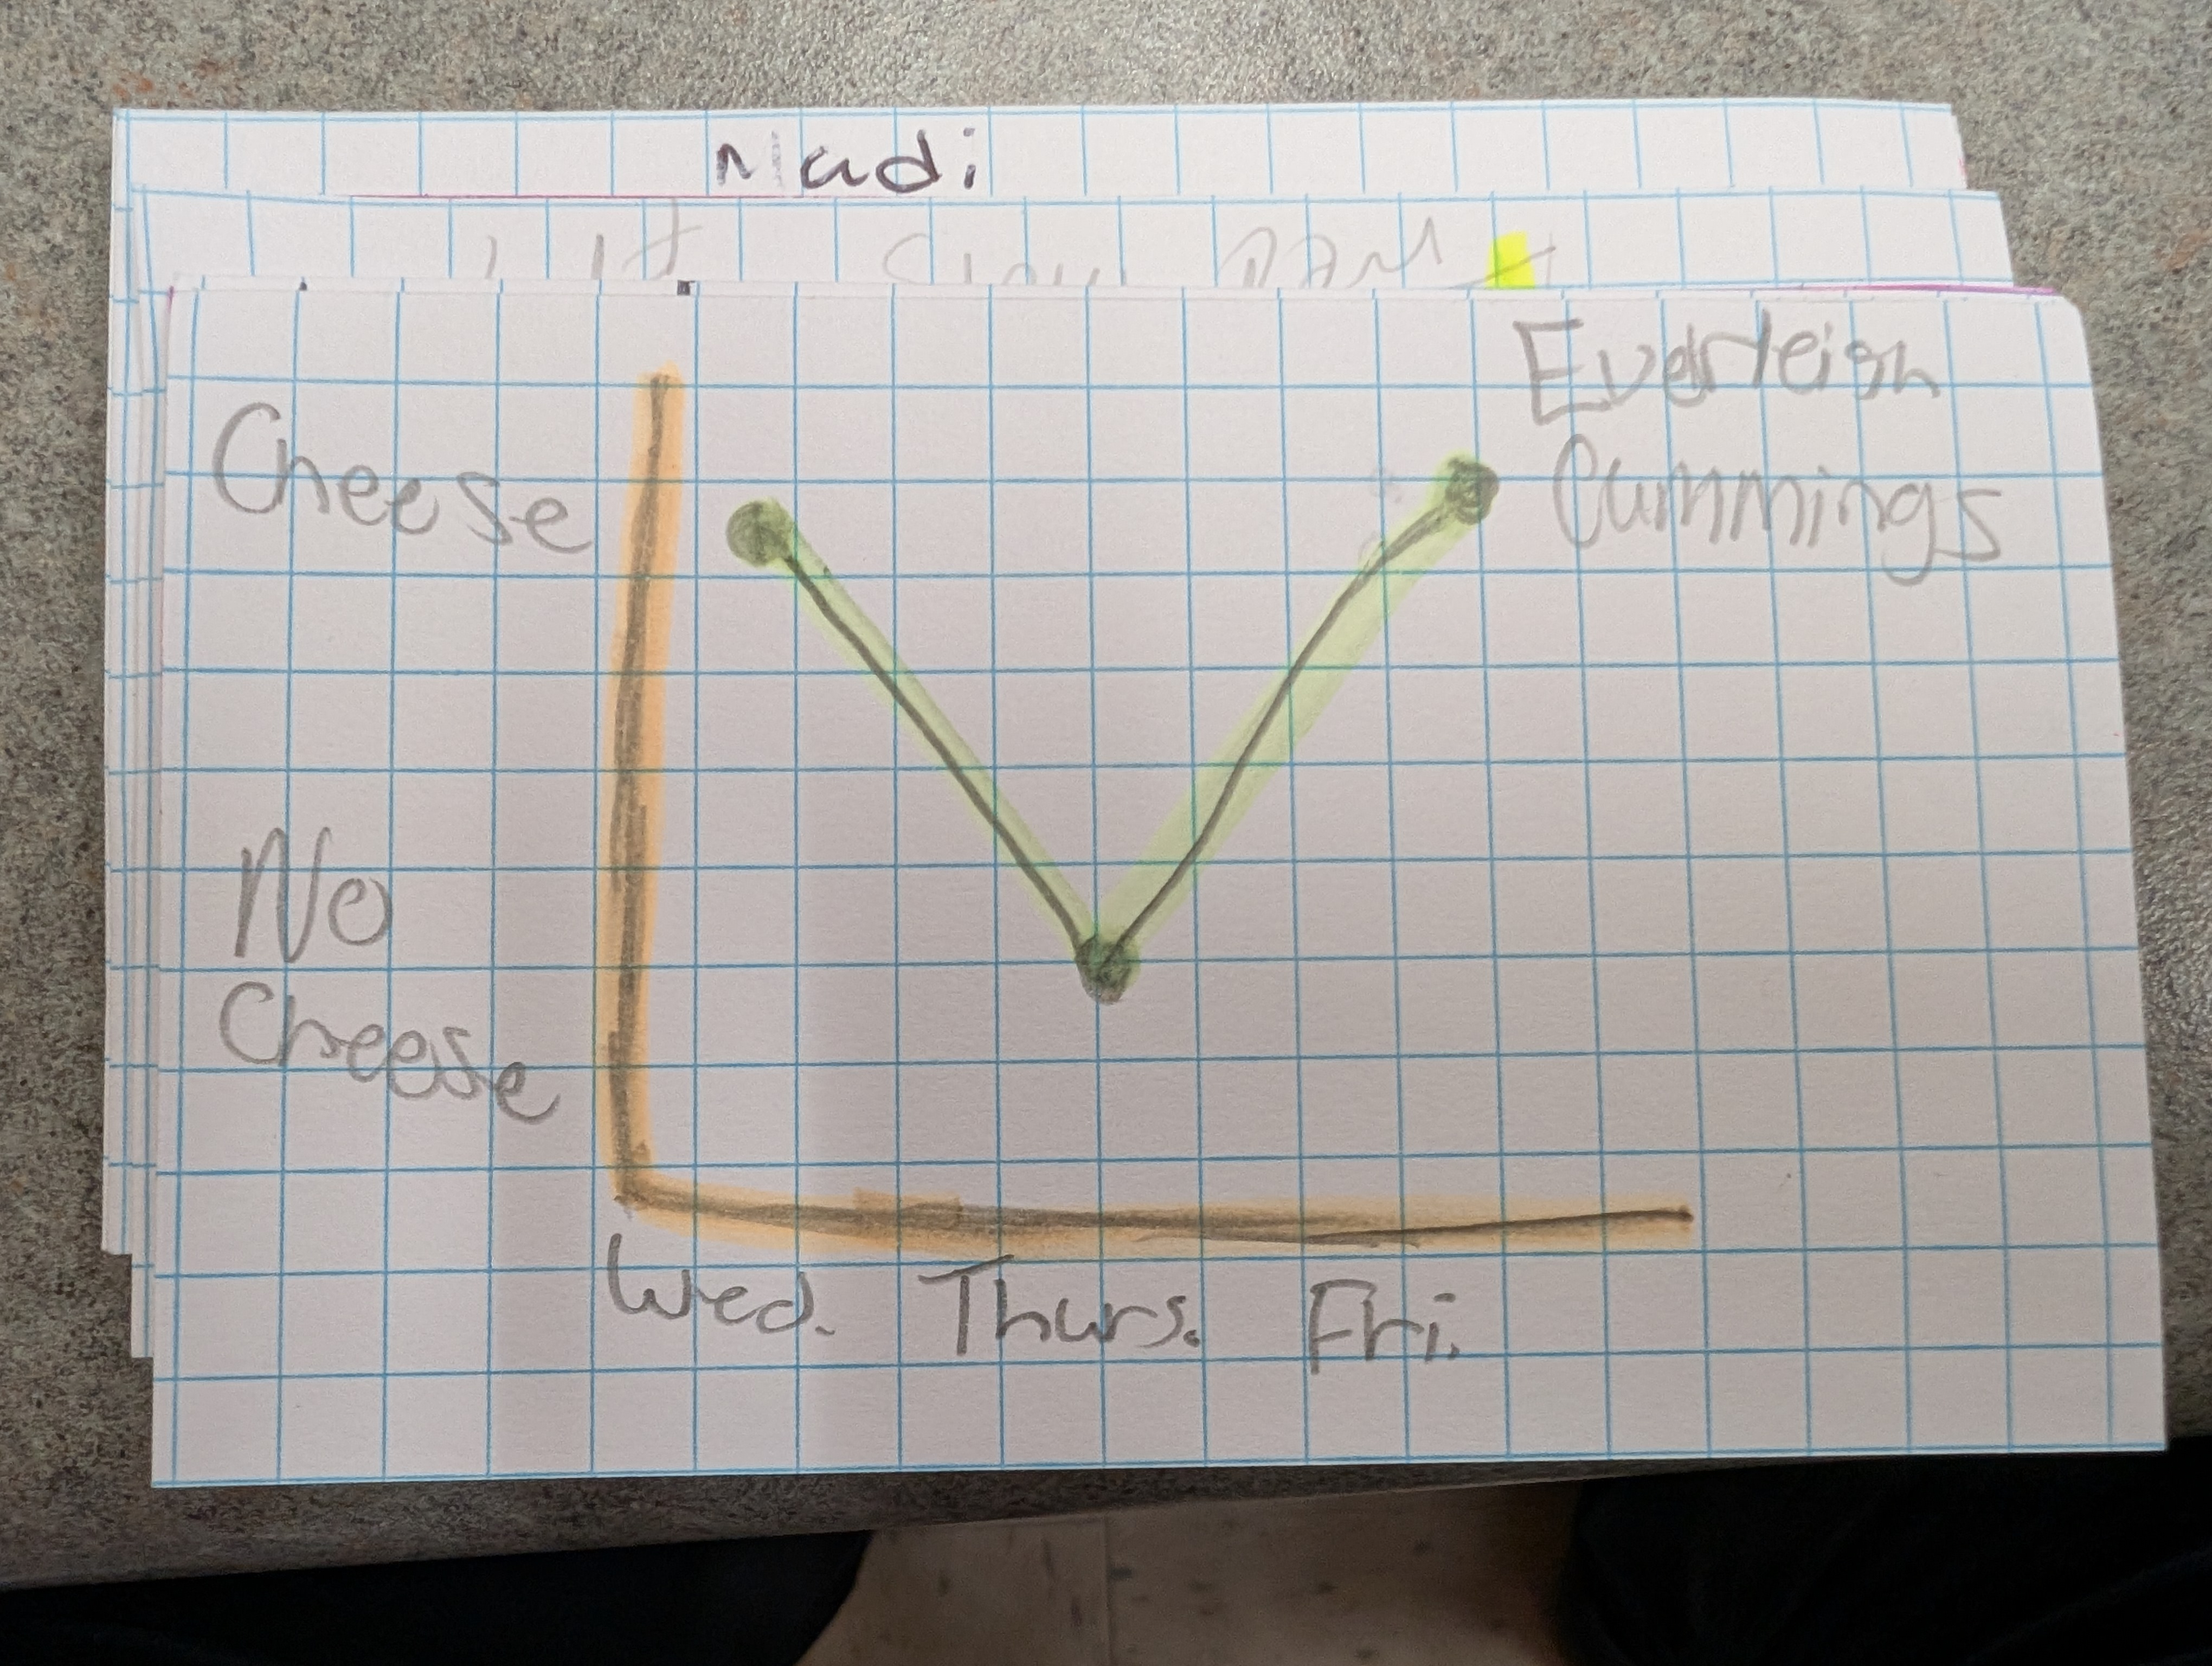 Madi
Everleigh
Cummings
Cheese
No
Cheese
Wed. Thurs. Fri.